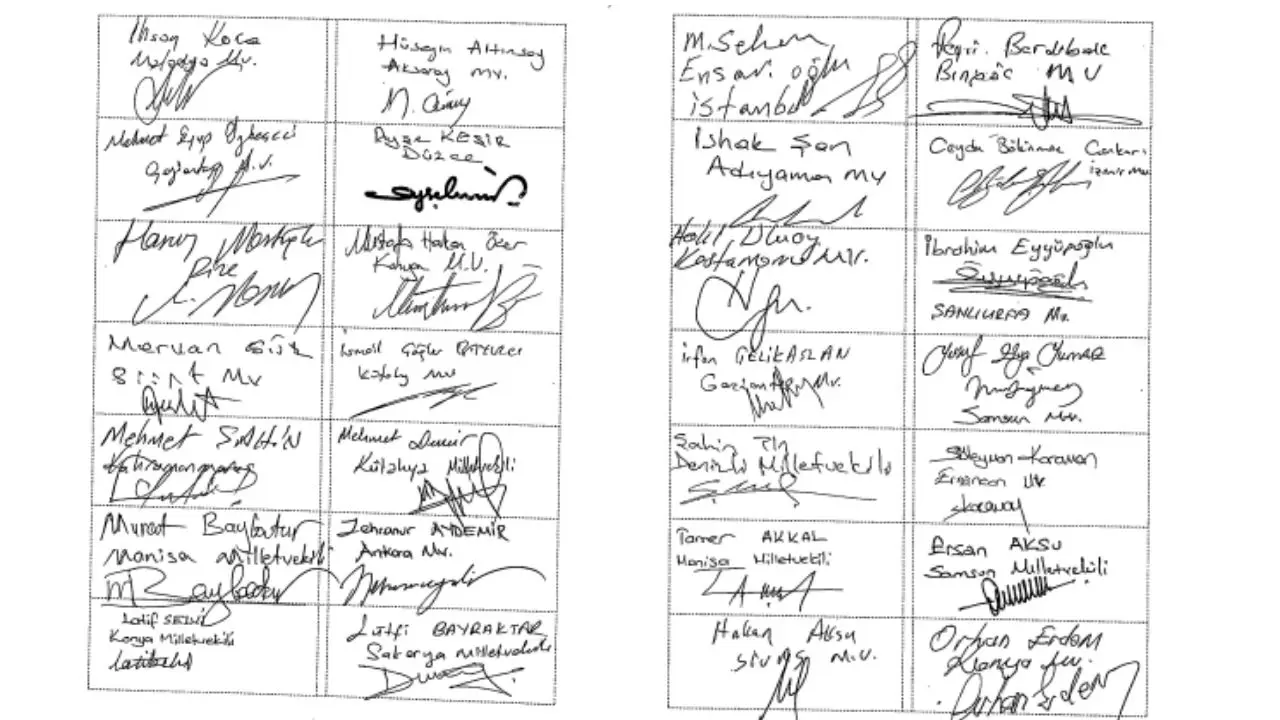 İhsan Koca
Malatya Mv.
Hüseyin Altınsoy
Aksaray mv.
Mehmet Eyup Özkeçeci
Gaziantep M.V.
Ayşe KEŞİR
Düzce
Harun Mertoğlu
Rize
Mustafa Hakan Özer
Konya M.V.
Mervan Gül
Siirt Mv
İsmail Çağlar BAYIRCI
Kütahya mv
Mehmet ŞAHİN
Kahramanmaraş
Mehmet Demir
Kütahya Milletvekili
Murat Baybatur
Manisa Milletvekili
M Baybatur
Zehranur AYDEMİR
Ankara Mv.
Latif SELVİ
Konya Milletvekili
Lütfi BAYRAKTAR
Sakarya Milletvekili
M. Sehem
Ensarioğlu
İstanbul
Feyzi Berdibek
Bingöl MV
İshak Şan
Adıyaman MV
Ceyda Bölünmez Çankırı
İzmir Mv.
Halil Uluay
Kastamonu Mv.
İbrahim Eyyüpoğlu
ŞANLIURFA Mv.
İrfan ÇELİKASLAN
Gaziantep Mv.
Yusuf Ziya Yılmaz
Samsun Mv.
Şahin Tin
Denizli Milletvekili
Süleyman Karaman
Erzincan
Karaman
Tamer AKKAL
Manisa Milletvekili
Ersan AKSU
Samsun Milletvekili
Hakan Aksu
Sivas M.V.
Orhan Erdem
Konya Mv.
Orhan Erdem